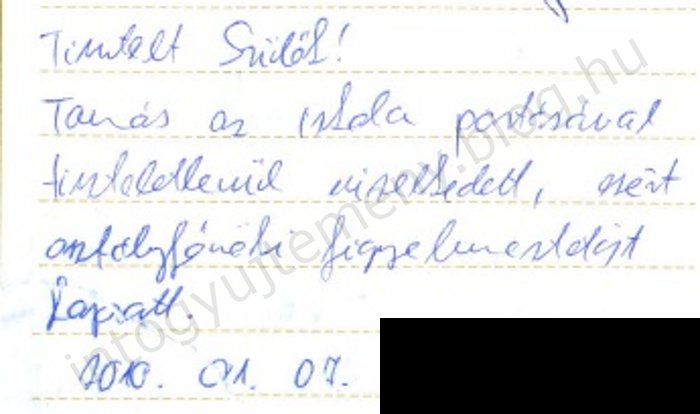 Tisztelt Szülők!
Tamás az iskola portásával
tiszteletlenül viselkedett, ezért
osztályfőnöki figyelmeztetést
kapott.
2010. 01. 07.
intogyujtemeny.blog.hu